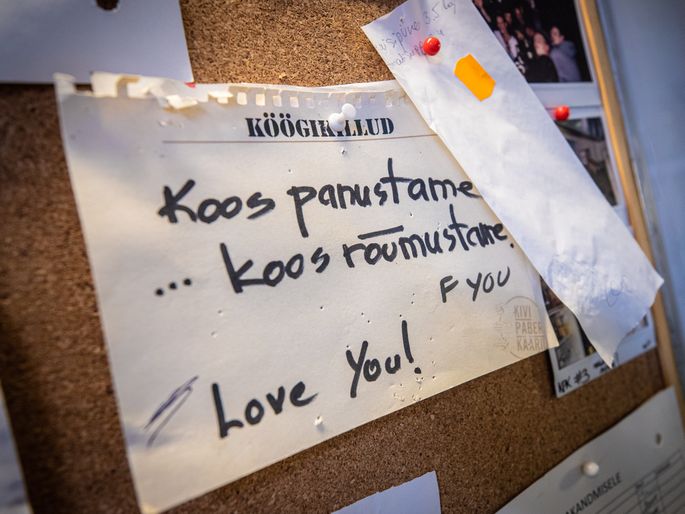 KÖÖGIKILLUD
Koos panustame
... koos rõõmustame!
F YOU
Love You!
KIVI
PABER
KÄÄRID
3,5 kg
#3
KANDMISELE